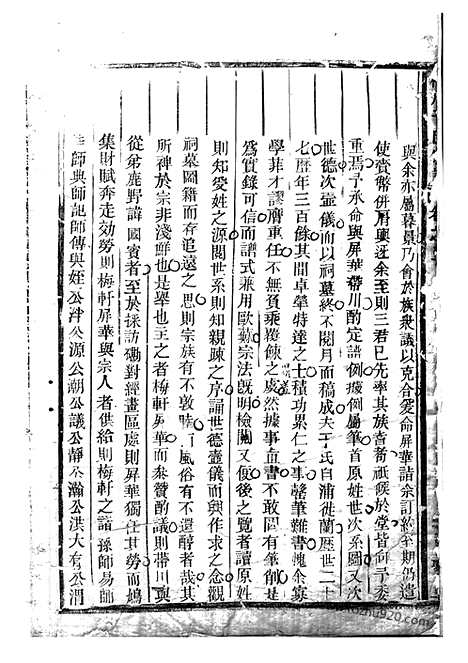 與余亦屬暮景乃會於族衆議以克合爰命屏華請余訂約至期仍遣
使賫幣併厝輿近余至則三君已先率其族耆蓊祗候於堂皆向予委
重焉予承命與屏華帶川酌定譜例據例屬筆首原姓世次系圖又次
世德次壼儀于以祠墓終不閱月而稿成夫于氏自浦徙蘭歷世二十
七歷年三百餘其間卓犖特達之士積功累仁之事罄筆難書愧余寡
學菲才謬膺重任不無負乘覆餗之虞然據事直書不敢間有僭創
爲實錄可信而譜式兼用歐蘇宗法旣明檢閱又便後之覽者讀原姓
則知受姓之源閱世系則知親疎之序誦世德壼儀而興作求之念觀
祠墓圖籍而存追遠之思則宗族有不敦睦風俗有不還醇者哉其
所裨於宗非淺鮮也是舉也主之者梅軒屏華而叅贊酌議則帶川與
從弟鹿野諱國賓者至於採訪勷對經畫區處則屏華獨仕其勞而鳩
集財賦奔走効勞則梅軒屏華與宗人者供給則梅軒之諸孫師易師
師典師記師傅與姪公泮公源公潮公議公靜公瀚公洪大有公渭